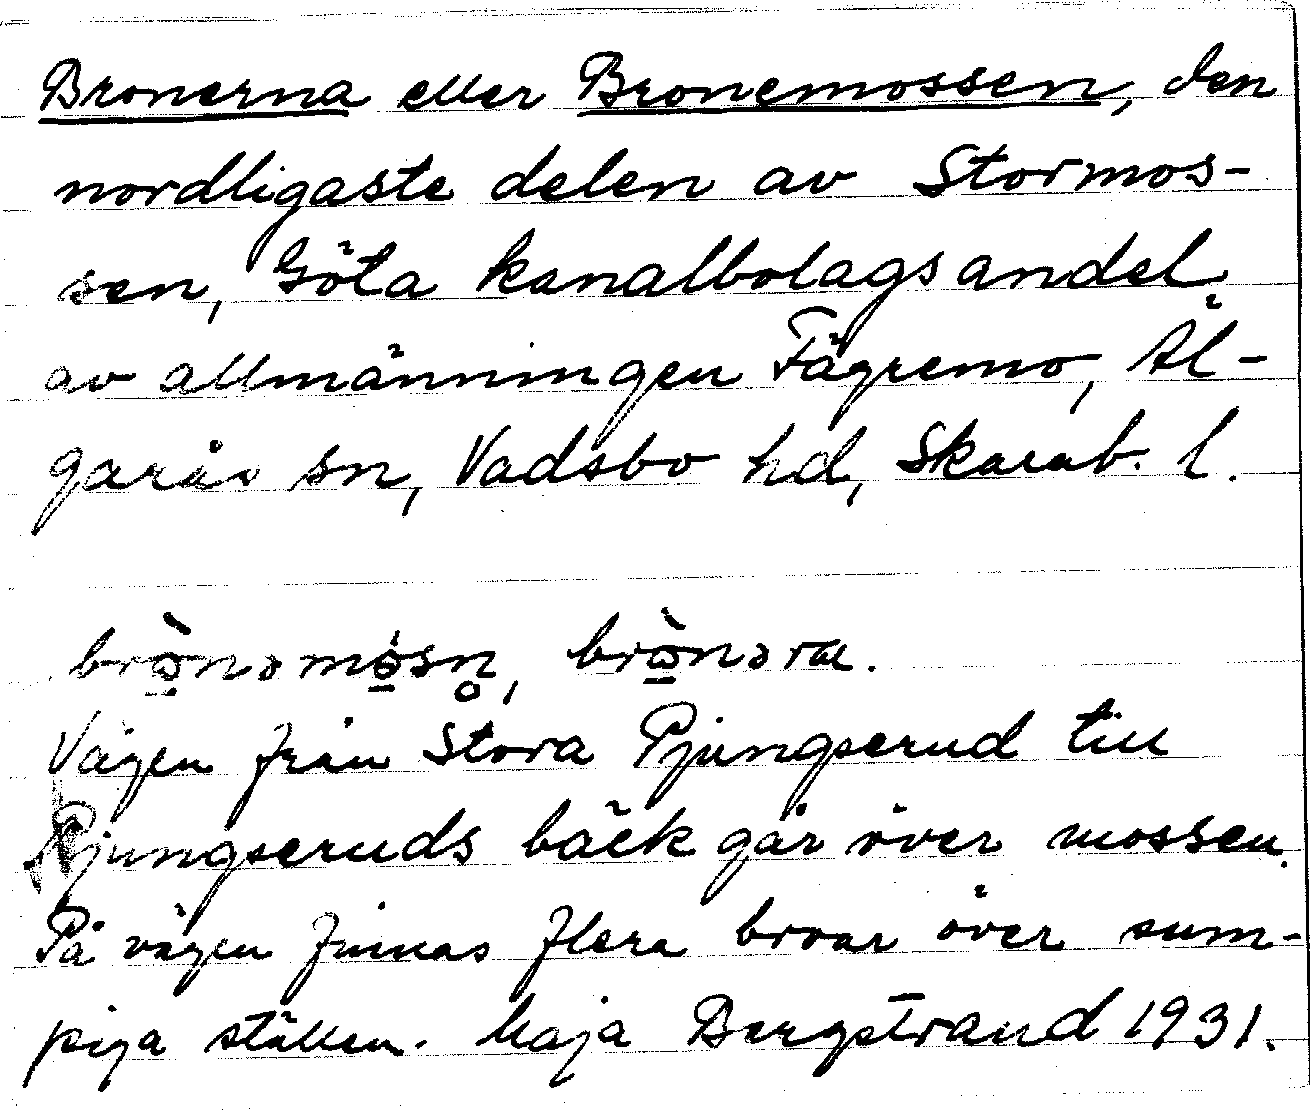 Bronerna eller Bronemossen, den
nordligaste delen av Stormos-
sen, Göta kanalbolags andel
av allmänningen Fägremo, Äl-
garås sn, Vadsbo hd, Skarab. l.
brò̱nəmò̱sn̥, brò̱nəra.
Vägen från Stora Pjungserud till
Pjungseruds bäck går över mossen.
På vägen finnas flera broar över sum-
piga ställen. Maja Bergstrand 1931.